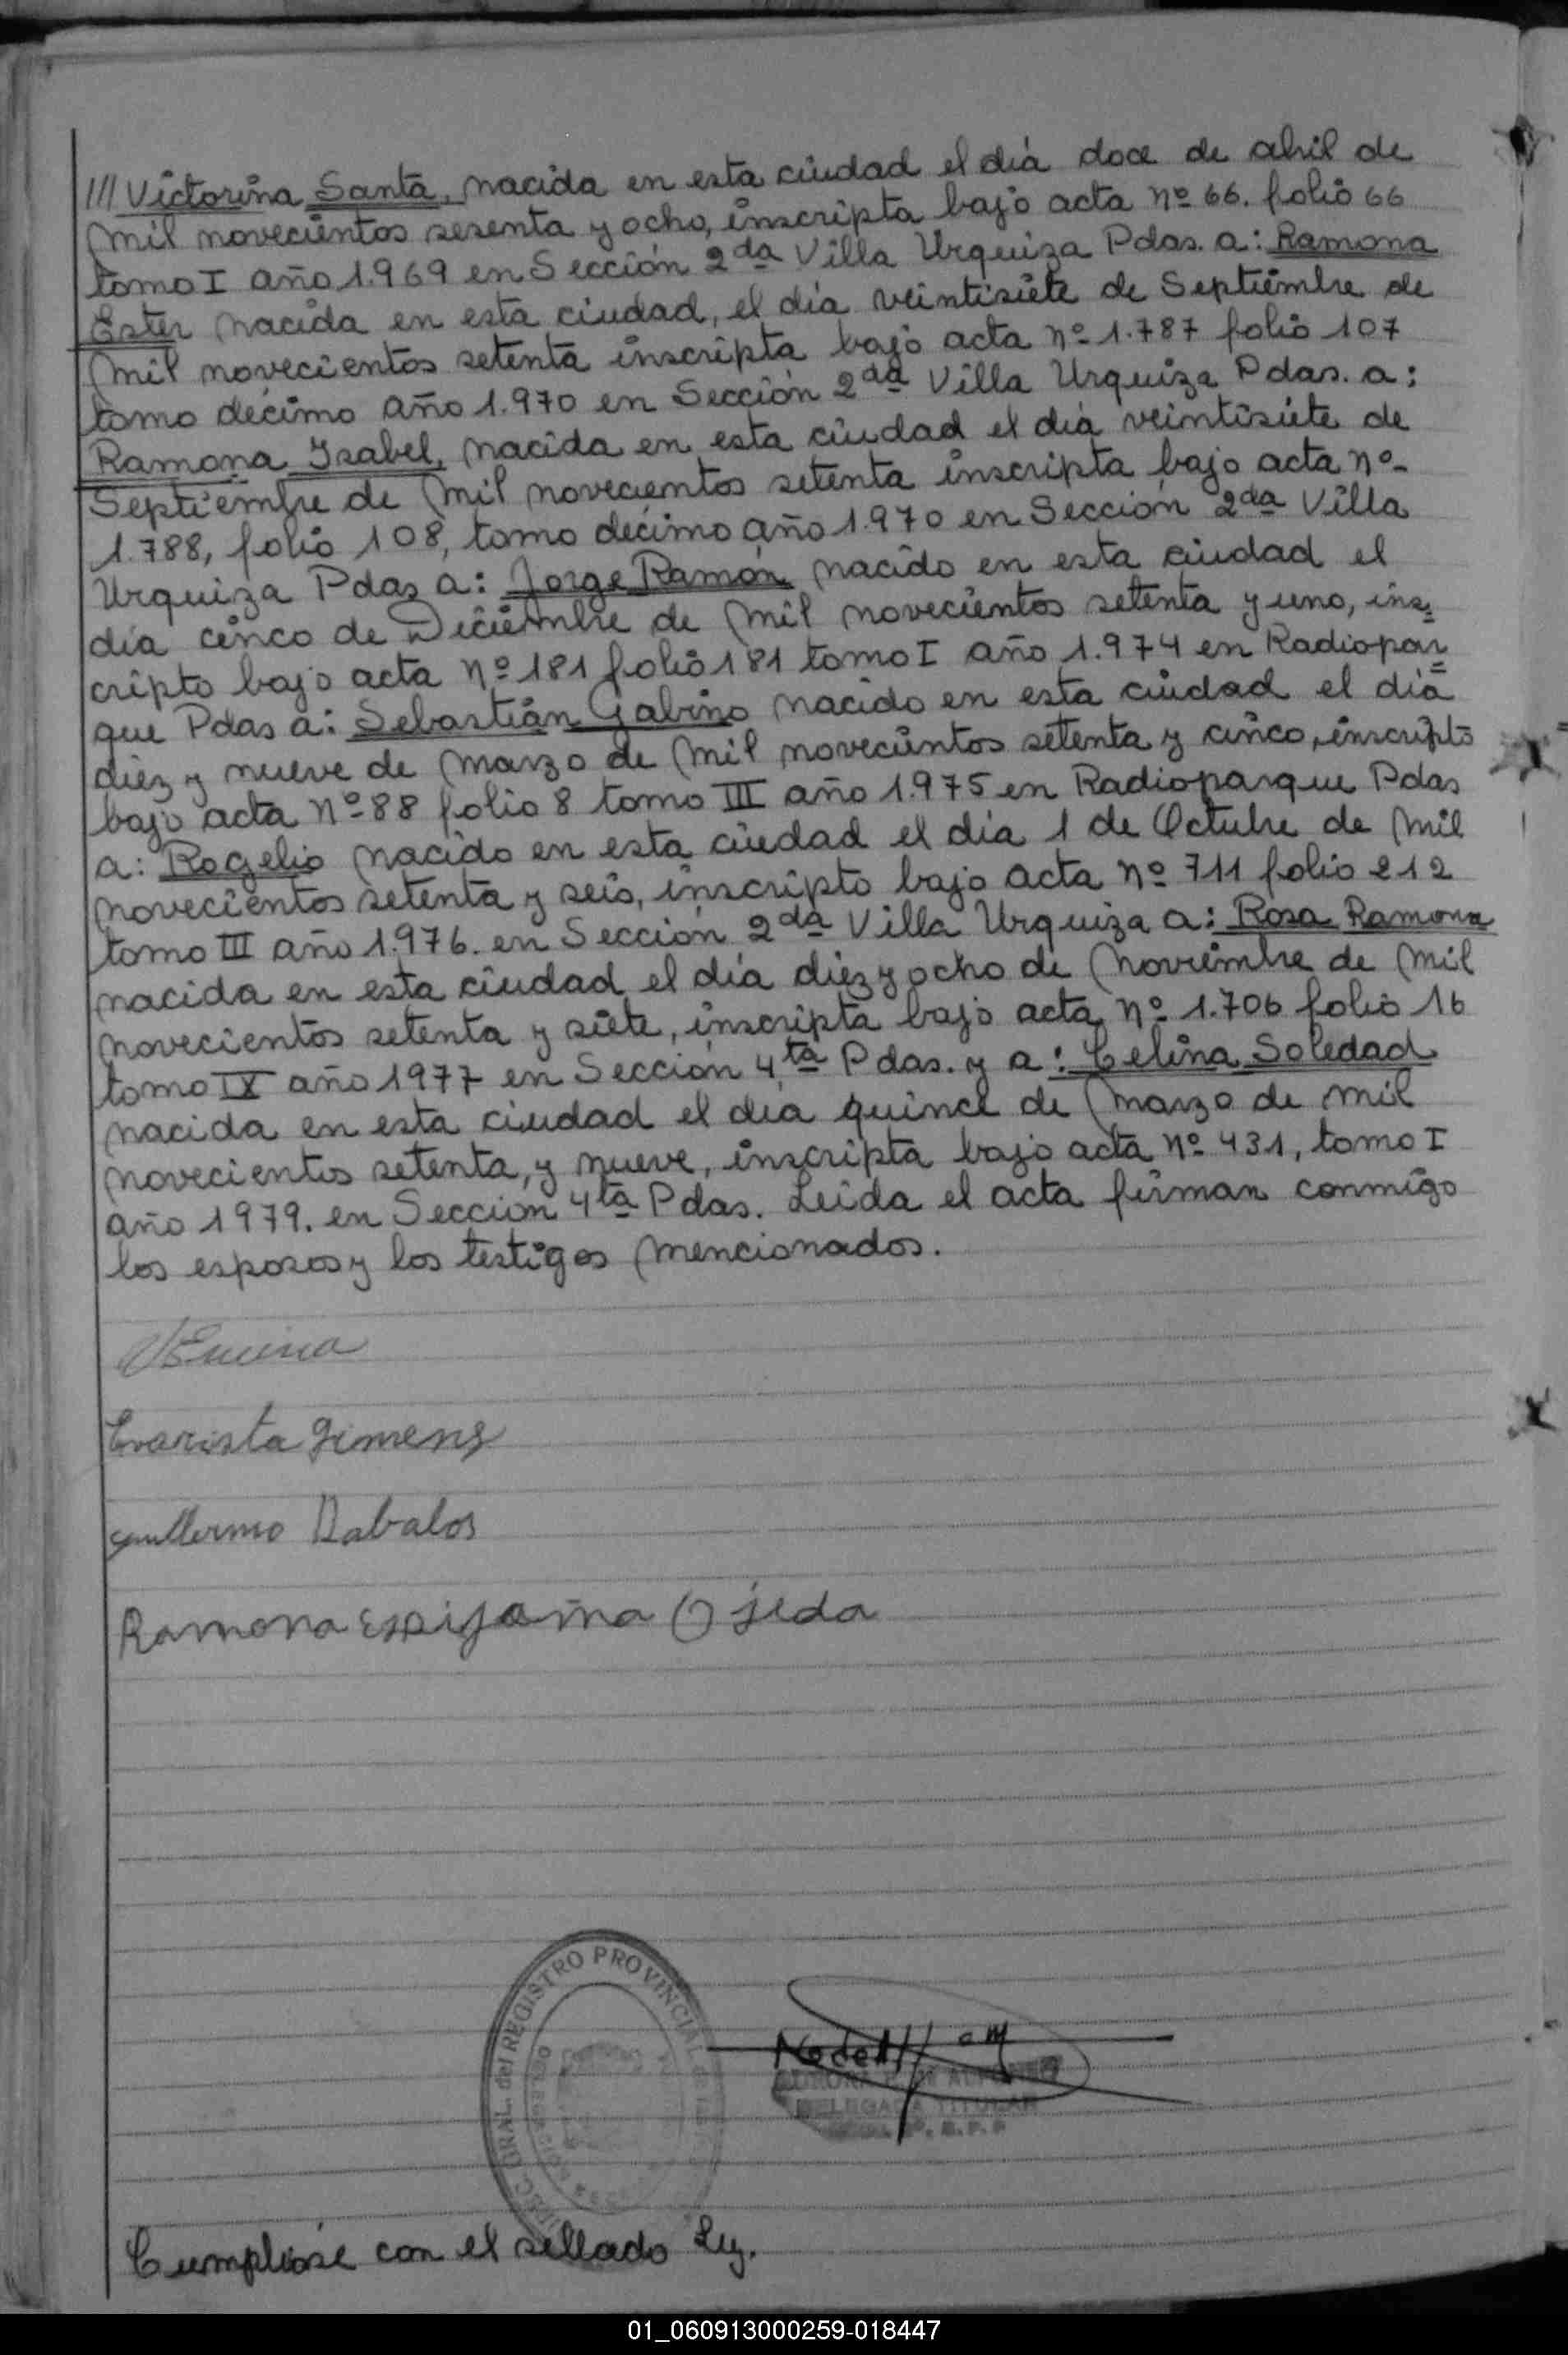 /// Victorina Santa, nacida en esta ciudad el día doce de abril de
mil novecientos sesenta y ocho, inscripta bajo acta nº 66. folio 66
tomo I año 1.969 en Sección 2da Villa Urquiza Pdas. a: Ramona
Ester nacida en esta ciudad, el día veintisiete de Septiembre de
mil novecientos setenta inscripta bajo acta nº 1.787 folio 107
tomo décimo año 1.970 en Sección 2da Villa Urquiza Pdas. a:
Ramona Isabel, nacida en esta ciudad el día veintisiete de
Septiembre de mil novecientos setenta inscripta bajo acta nº
1.788, folio 108, tomo décimo año 1.970 en Sección 2da Villa
Urquiza Pdas a: Jorge Ramón nacido en esta ciudad el
día cinco de Diciembre de mil novecientos setenta y uno, ins=
cripto bajo acta nº 181 folio 181 tomo I año 1.974 en Radiopar=
que Pdas a: Sebastián Gabino nacido en esta ciudad el día
diez y nueve de marzo de mil novecientos setenta y cinco, inscripto
bajo acta nº 88 folio 8 tomo III año 1.975 en Radioparque Pdas
a: Rogelio nacido en esta ciudad el día 1 de Octubre de mil
novecientos setenta y seis, inscripto bajo acta nº 711 folio 212
tomo III año 1.976. en Sección 2da Villa Urquiza a: Rosa Ramona
nacida en esta ciudad el día diez y ocho de noviembre de mil
novecientos setenta y siete, inscripta bajo acta nº 1.706 folio 16
tomo IX año 1977 en Sección 4ta Pdas. y a: Celina Soledad
nacida en esta ciudad el día quince de marzo de mil
novecientos setenta, y nueve, inscripta bajo acta nº 431, tomo I
año 1979. en Sección 4ta Pdas. Leida el acta firman conmigo
los esposos y los testigos mencionados.
Evarista Gimenz
Guillermo Dabalos
Ramona Ojeda
GRAL. del REGISTRO PROVINCIAL de las
DELEGADA TITULAR
Cumplióse con el sellado Ley.
01_060913000259-018447